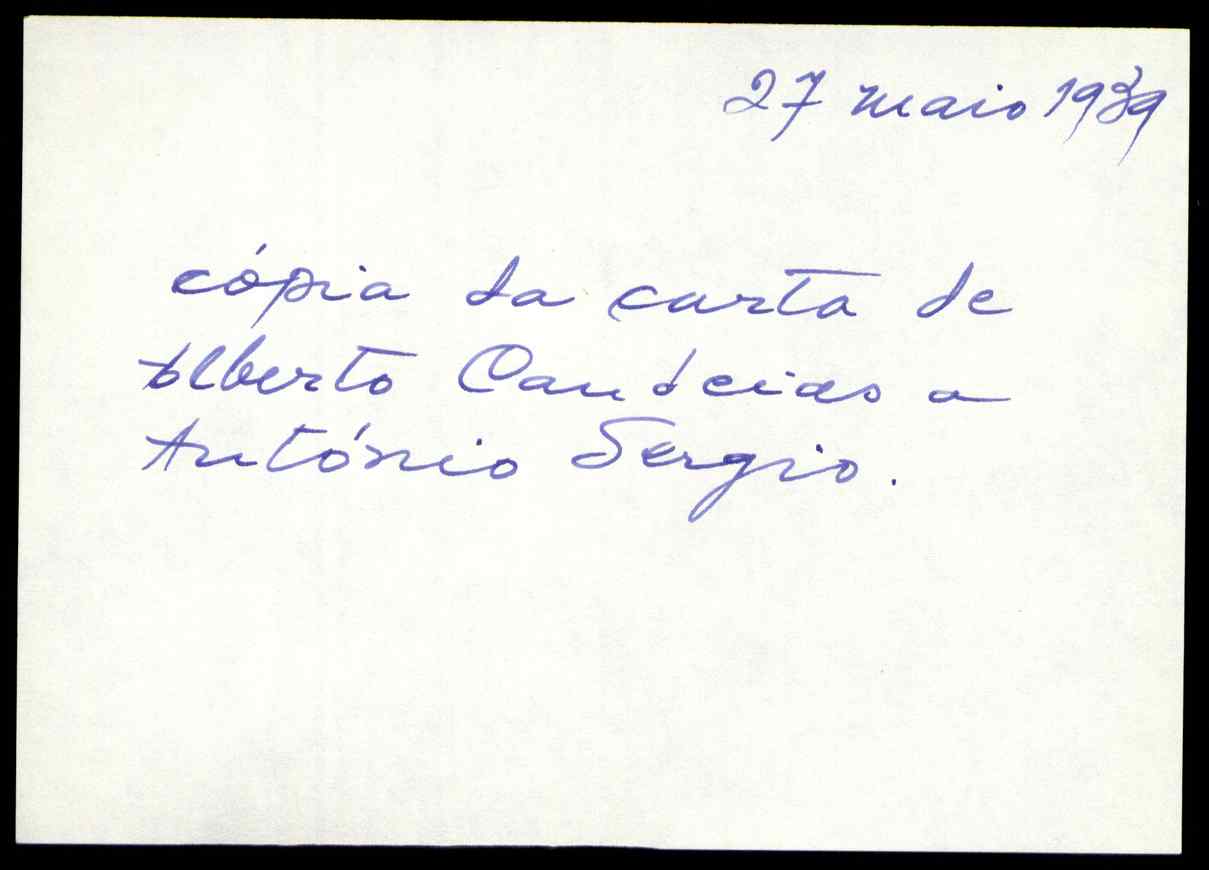 27 maio 1939
cópia da carta de
Alberto Candeias a
António Sergio.